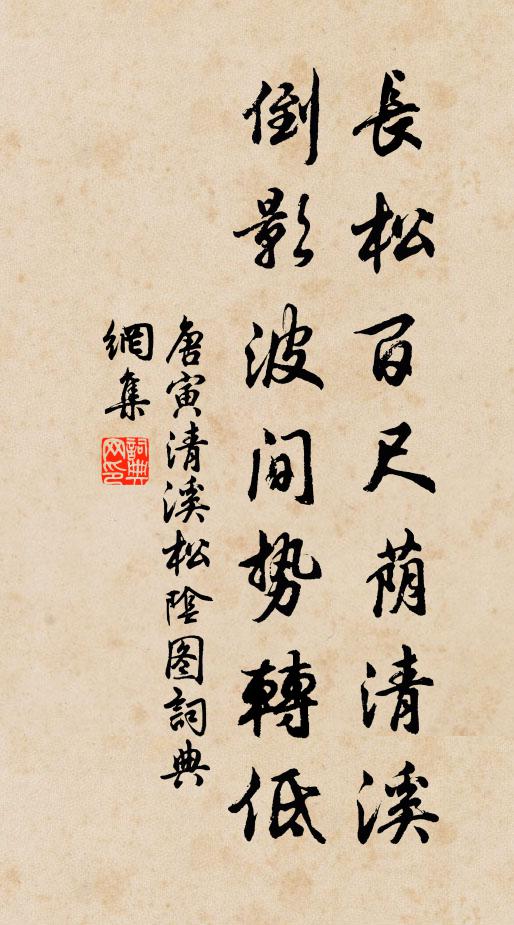 長松百尺荫清溪
倒影波间势轉低
唐寅清溪松陰图詞典
網集
詞典
网印